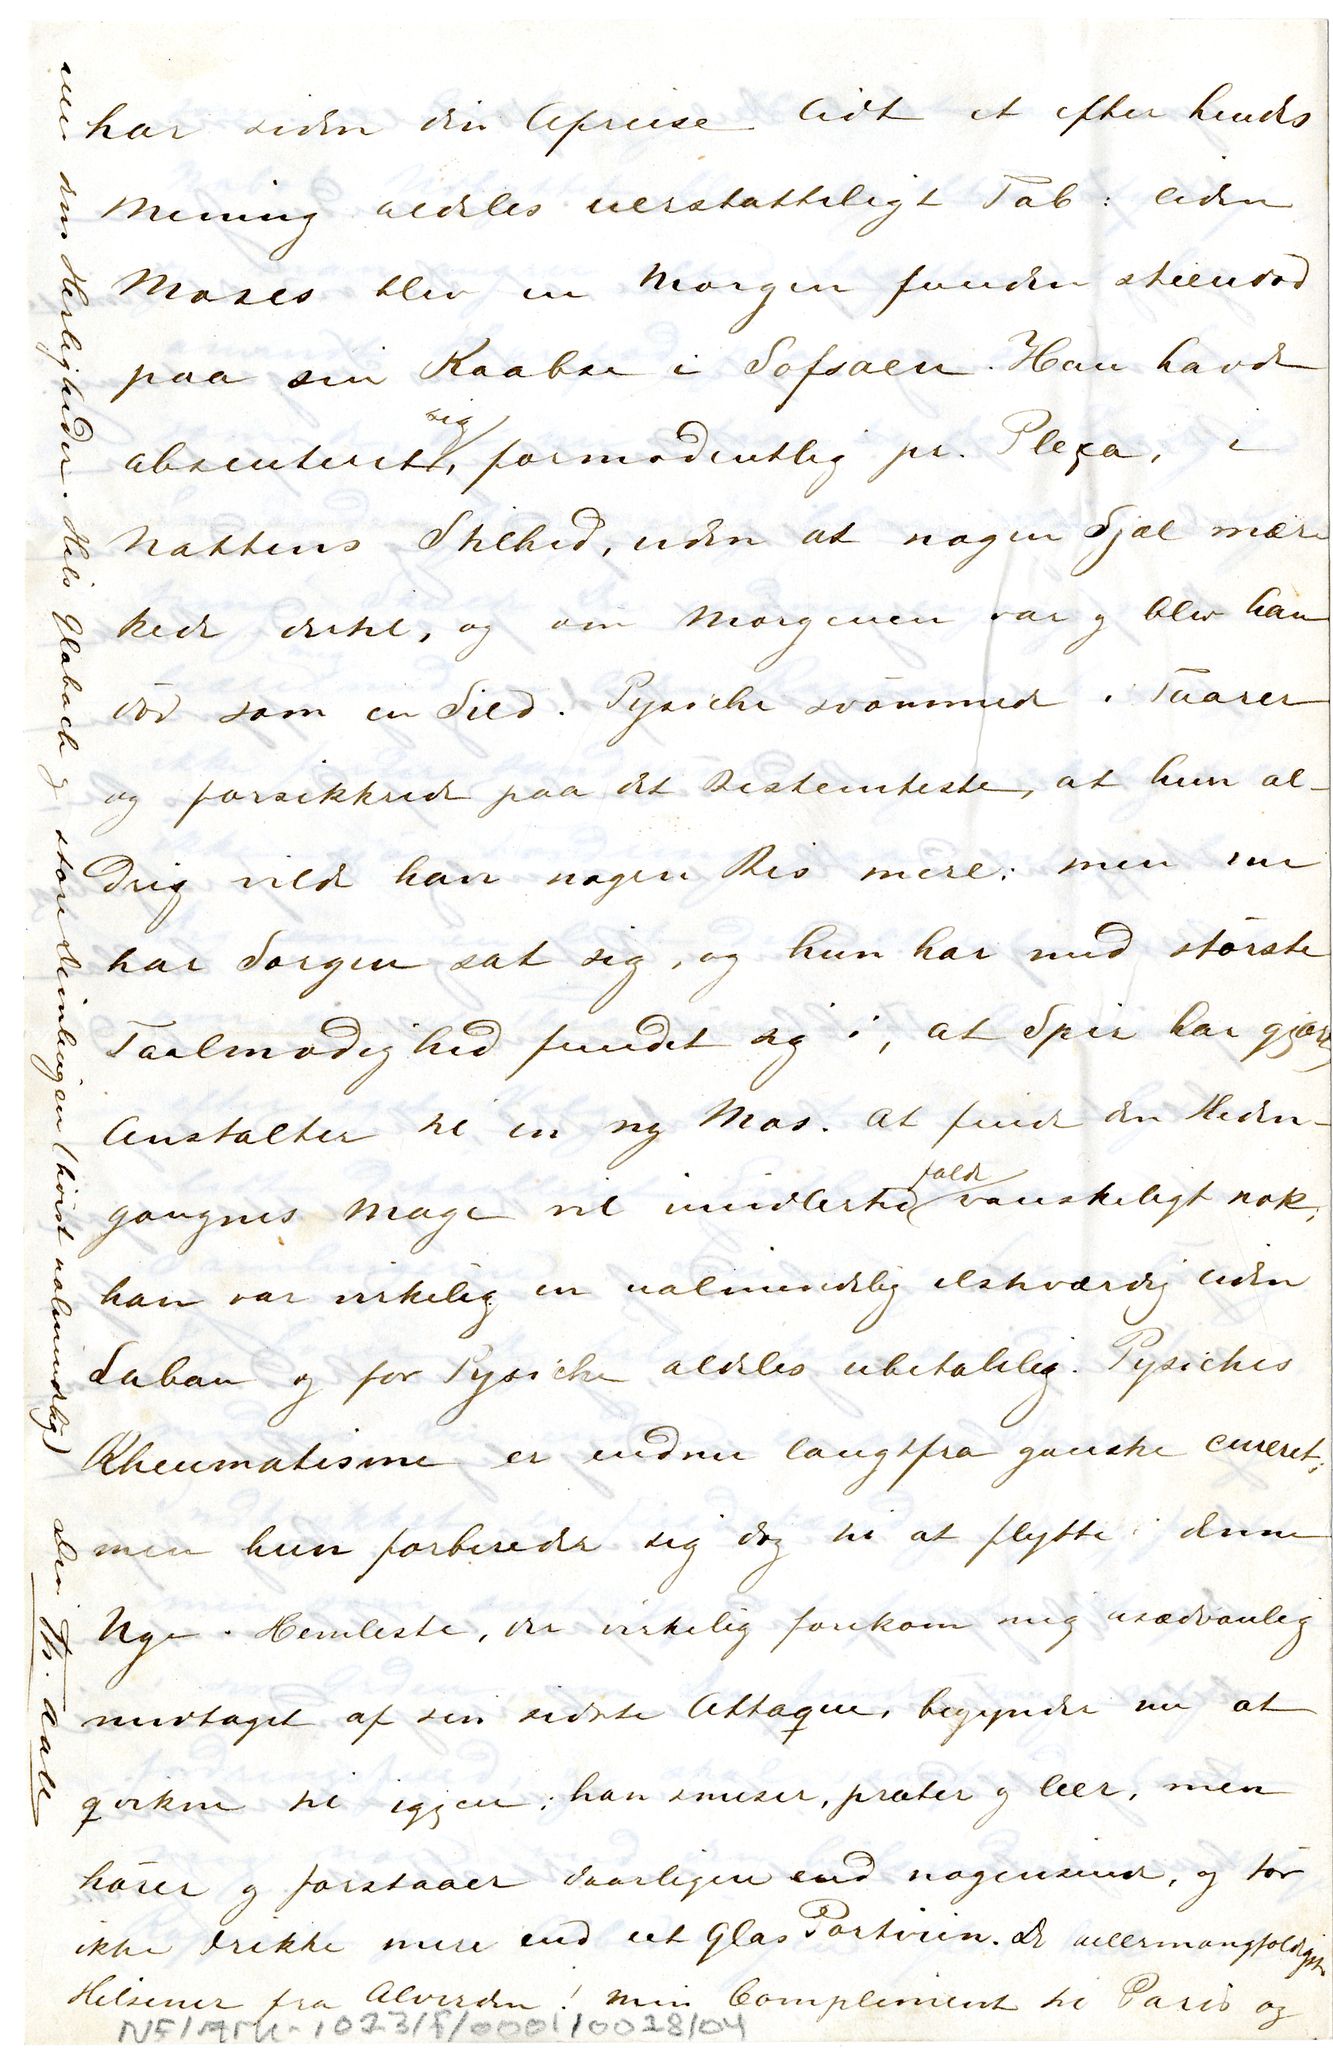 har siden din Afreise lidt et efter hendes
Mening aldeles uerstatteligt Tab: liden
Moses blev en Morgen funden steendød
paa sin Kaabse i Sofsalen. Han havde
absenteret sig, formodentlig pr. Plexa, i
Nattens Stilhed, uden at nogen Sjæl mær-
kede dertil, og om Morgenen var og blev han
død som en Sild. Pysiche svömmede i Taarer
og forsikkrede paa det Bestemteste, at hun al-
drig vilde have nogen Bis mere; men nu
har Sorgen sat sig, og hun har med störste
Taalmodighed fundet sig i, at Spir har gjort
Anstalter til en ny Mos. At finde den Heden-
gangnes Mage vil imidlertid falde vanskeligt nok;
han var virkelig en ualmindelig elskværdig liden
Laban og for Pysiche aldeles ubetalelig. Pysiches
Rheumatisme er endnu langtfra ganske cureret;
men hun forbereder sig dog til at flytte i denne
Uge. Hemleste, der virkelig forekom mig usædvanlig
medtaget af sin sidste Attaque, begynder nu at
qvikne til igjen; han smiser, prater og leer, men
hörer og forstaaer daarligere end nogensinde, og tör
ikke drikke mere end et Glas Portviin. De allermangfoldigste
Hilsener fra Alverden! Min Compliment til Paris og
alle dens Herligheder. Hils Gløbach og store Steinhügen (höist ualmindelig)
Din Th. Aall
NF/Ark-1023/F/0001/0028/04